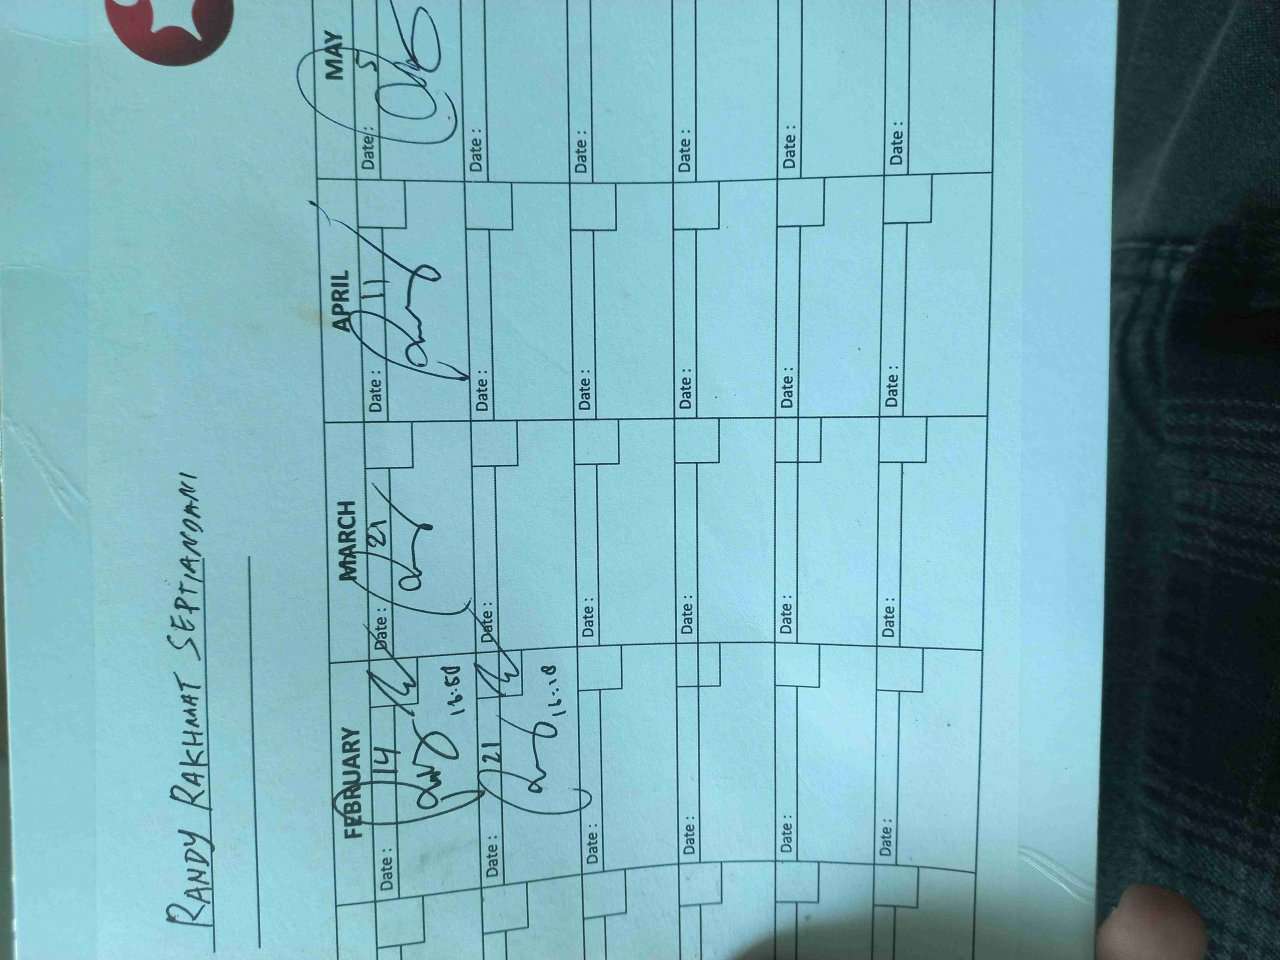 RANDY RAKHMAT SEPTIANDANI
FEBRUARY MARCH APRIL MAY
Date : 14 Date : 21 Date : 11 Date : 5
16.50
Date : 21 Date : Date : Date :
16.18
Date : Date : Date : Date :
Date : Date : Date : Date :
Date : Date : Date : Date :
Date : Date : Date : Date :